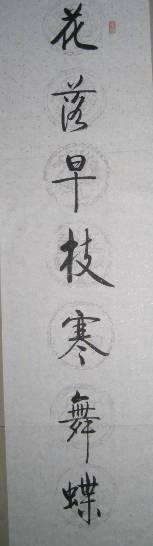 花落早枝寒舞蝶